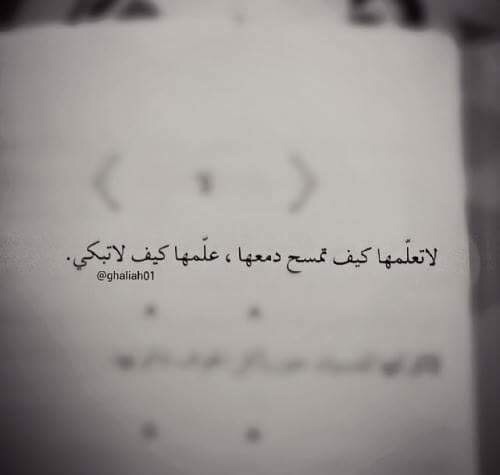 لاتعلّمها كيف تمسح دمعها ، علّمها كيف لاتبكي.
@ghaliah01